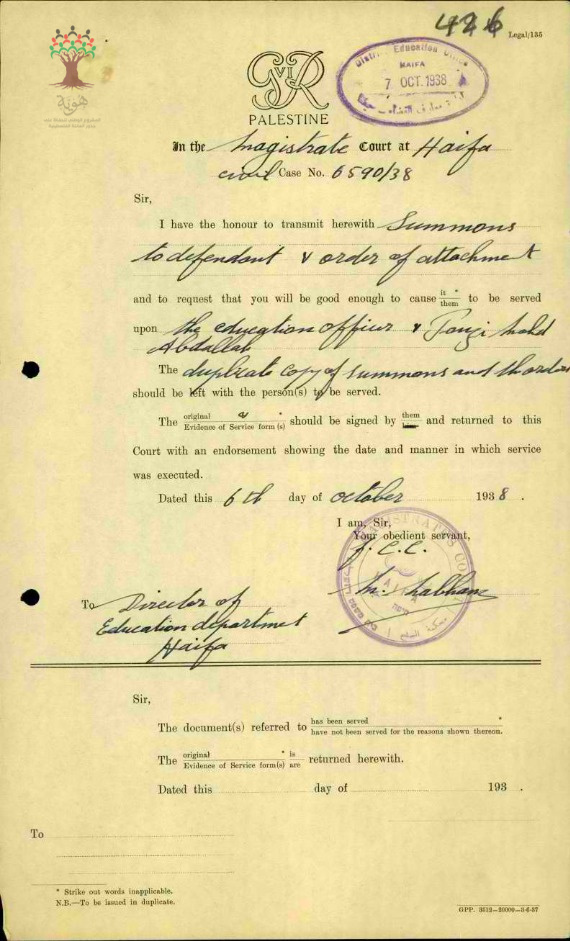 426
Legal/135
هوية
District Education Office
HAIFA
7 OCT. 1938
G VI R
PALESTINE
In the Magistrate Court at Haifa
civil Case No. 6590/38
Sir,
I have the honour to transmit herewith Summons
to defendant & order of attachment
and to request that you will be good enough to cause it * them to be served
upon the education officer &
Abdallah
The duplicate copy of summons and the order
should be left with the person(s) to be served.
The original * Evidence of Service form(s) should be signed by them and returned to this
Court with an endorsement showing the date and manner in which service
was executed.
Dated this 6th day of October 1938.
I am, Sir,
Your obedient servant,
J.C.C.
To Director of
Education departmet
Haifa
Sir,
The document(s) referred to has been served * have not been served for the reasons shown thereon.
The original * is Evidence of Service form(s) are returned herewith.
Dated this day of 193 .
To
* Strike out words inapplicable.
N.B.—To be issued in duplicate.
GPP. 3512—20000—3-6-37